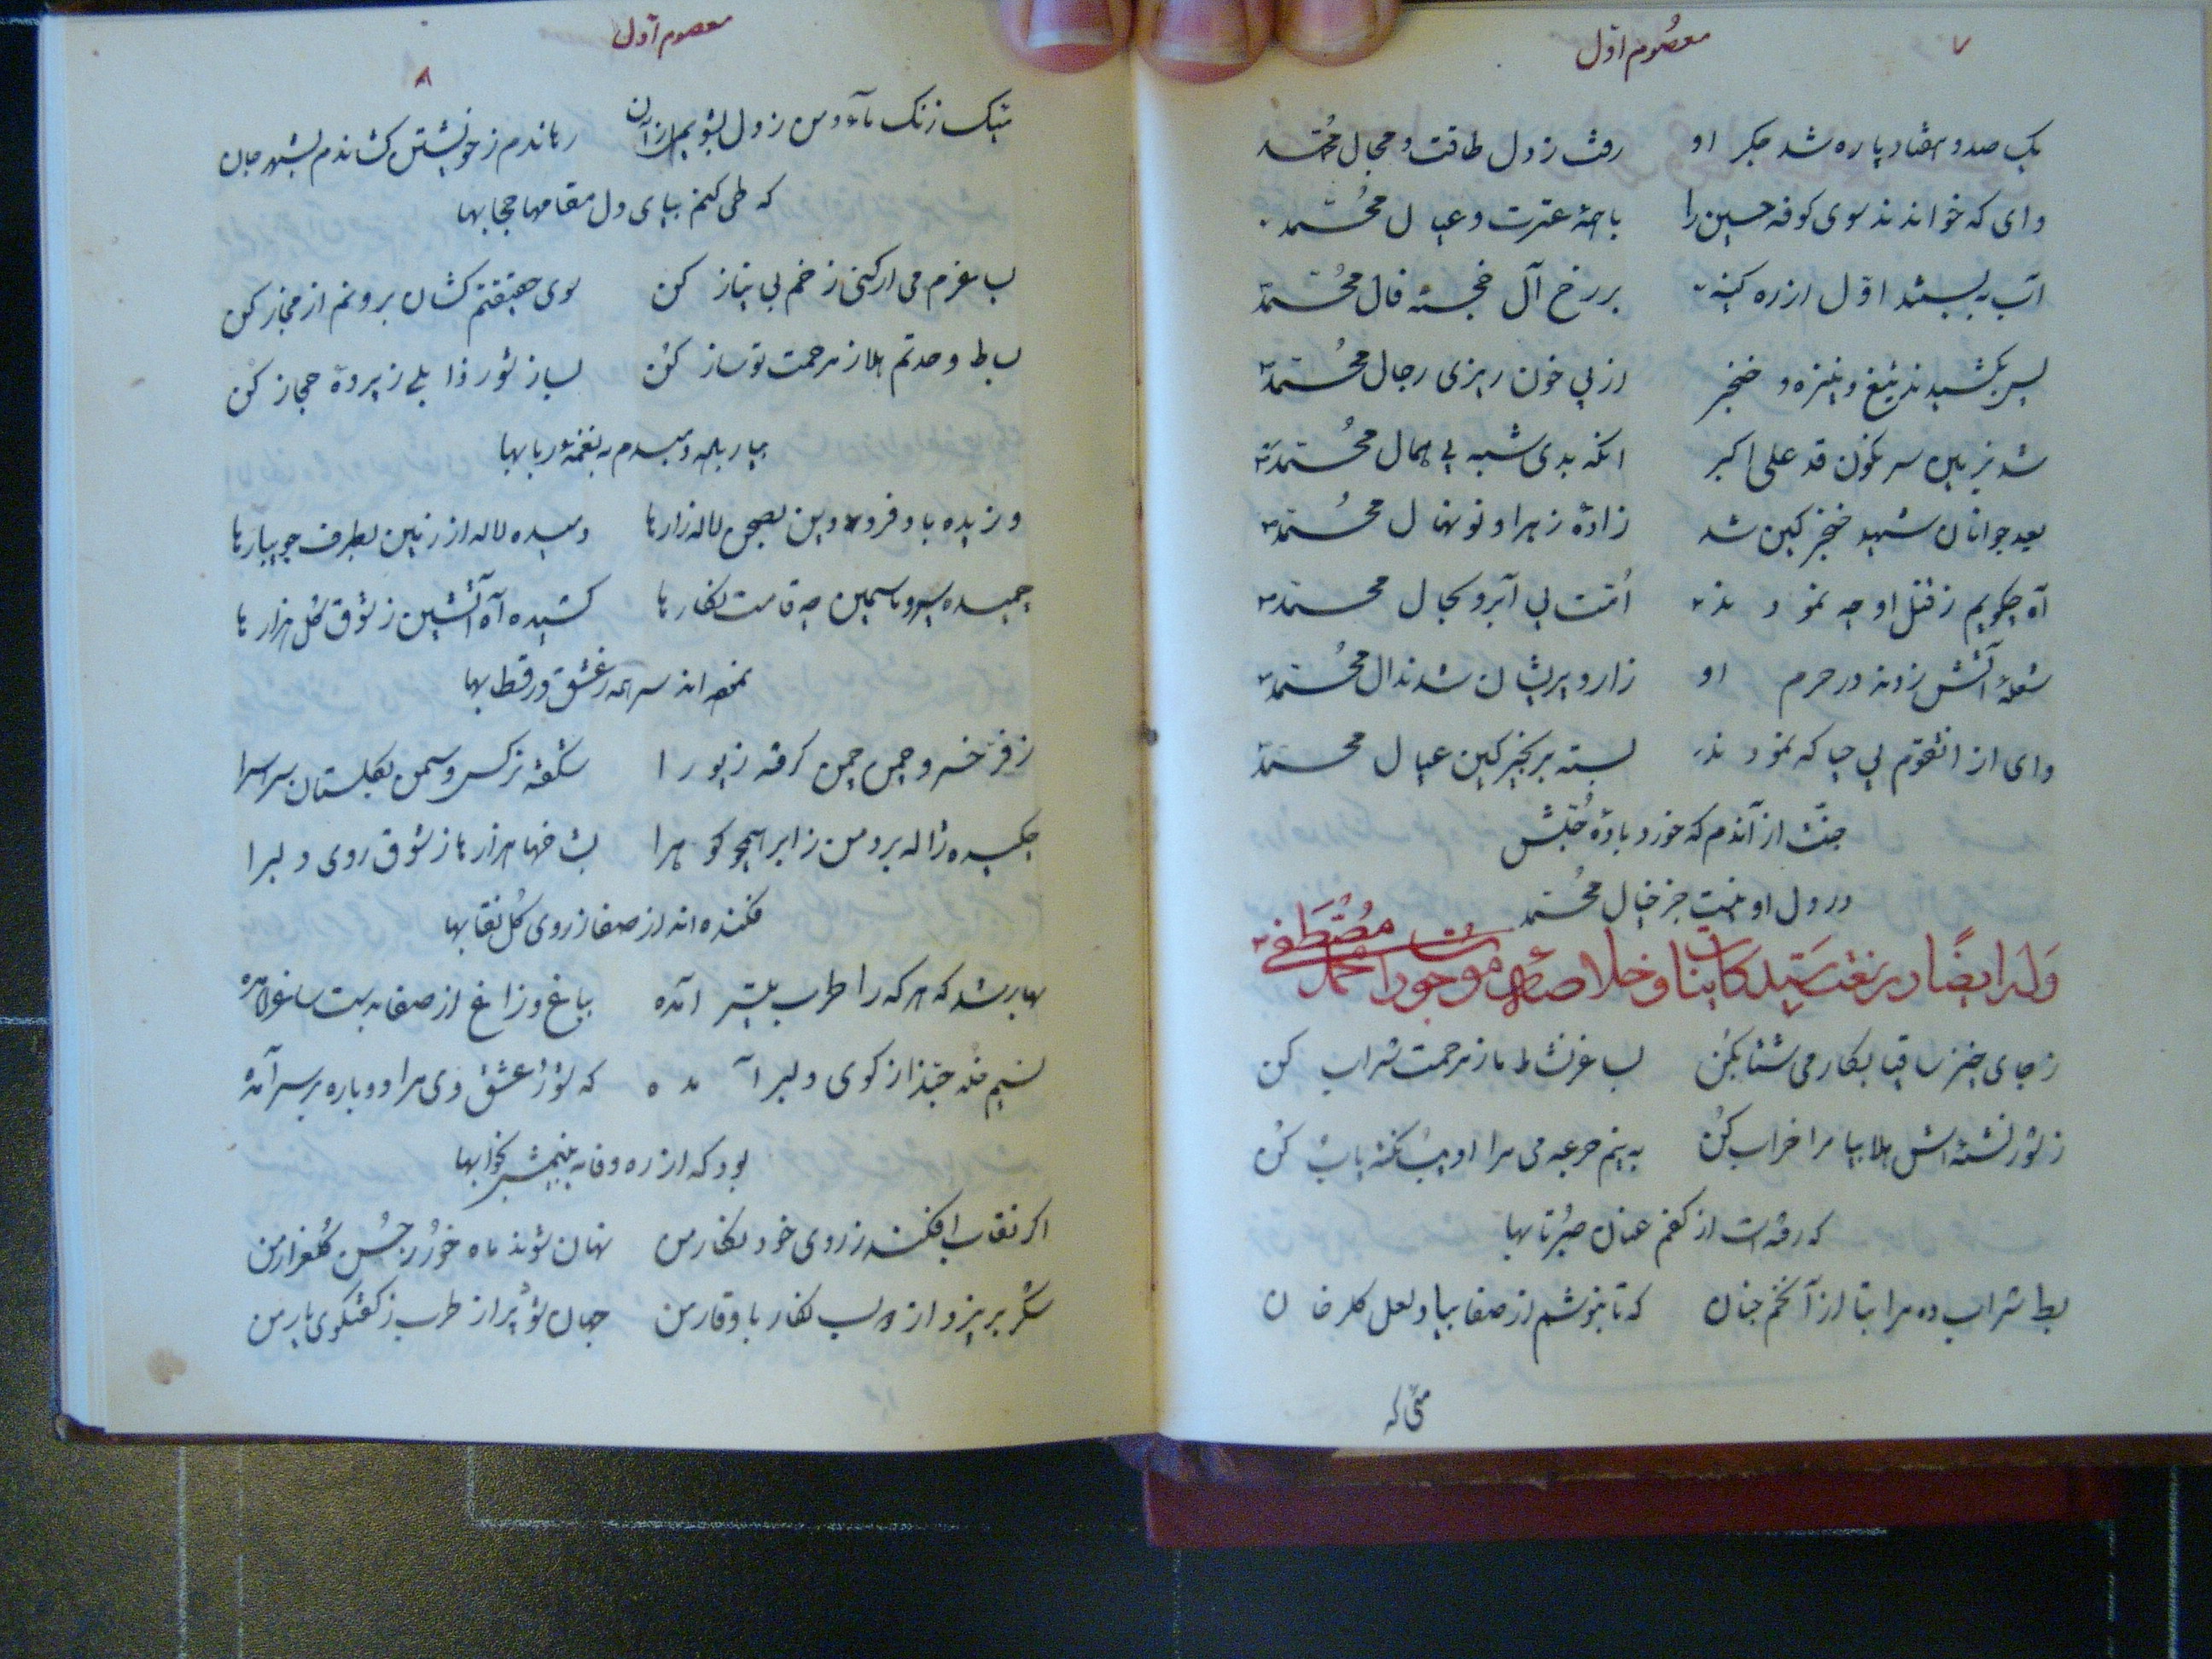 ۷
معصوم اوّل
یک صد و هفتاد پاره شد جکر او رفت ز دل طاقت و مجال محمّد
وای که خواندند سوی کوفه حسین را با همهٔ عترت و عیال محمّد
آب ببستند اوّل از ره کینه بر رخ آل خجسته فال محمّد
پس بکشیدند تیغ و نیزه و خنجر از پی خون ریزی رجال محمّد
شد ز زین سرنکون قد علی اکبر انکه بدی شبه بی همال محمّد
بعد جوانان شهید خنجر کین شد زادهٔ زهرا و نونهال محمّد
آه چکویم ز قتل او چه نمودند امّت بی آبرو بجال محمّد
شعلهٔ آتش زدند در حرم او زار و پریشان شدند آل محمّد
وای از انقوم بی حیا که نمودند بسته بزنجیر کین عیال محمّد
جنّت از آندم که خورد بادهٔ حبّش
در دل او نیست جز خیال محمّد
وله ایضاً در نعت سیّد کاینات و خلاصهٔ موجودات محمّد مصطفی
ز جای خیز ساقیا بکار می شتاب کن بساغر نشاط ما ز مرحمت شراب کن
ز شور نشئهٔ اش هلا بیا مرا خراب کن به نیم جرعه می مرا
که رفته است از کفم عنان صبر و تابها
بط شراب ده مرا بتا از آن خم جنان که تا بنوشم از صفا بیاد لعل کلرخان
مئی که
معصوم اوّل
۸
رهاندم ز خویشتن کشاندم بشهر جان
که طی کنم بپای دل مقامها حجابها
بساغرم می ار کنی ز خم بی نیاز کن سوی حقیقتم کشان برونم از مجاز کن
بساط وحدتم هلا ز مرحمت تو ساز کن بساز شور ز پردهٔ حجاز کن
بنغمهٔ ربابها
وزیده باد فرودین بصحن لاله زارها دمیده لاله از زمین بطرف جویبارها
چمیده سرو یاسمین چه قامت نکارها کشیده آه آتشین ز شوق کل هزارها
ز فرّ خسرو چمن چمن کرفته زیورا شکفته نرکس و سمن بکلستان سراسرا
چکیده ژاله بر دمن ز ابر همچو کوهرا بشاخها هزارها ز شوق روی دلبرا
فکنده اند از صفا ز روی کل نقابها
بهار شد که هر که را طرب بیشتر آمده بباغ و زاغ از صفا بدست ساغر آمده
نسیم جبّذا از کوی دلبر آمده که شور عشق وی مرا دوباره بر سر آمده
بود که از ره وفا به بینمش بخوابها
اکر نقاب افکند ز روی خود نکار من نهان شوند ماه و خور ز حسن کلعذار من
شکر بریزد از دو لب نکار با وقار من جهان شود پر از طرب ز کفتکوی یار من